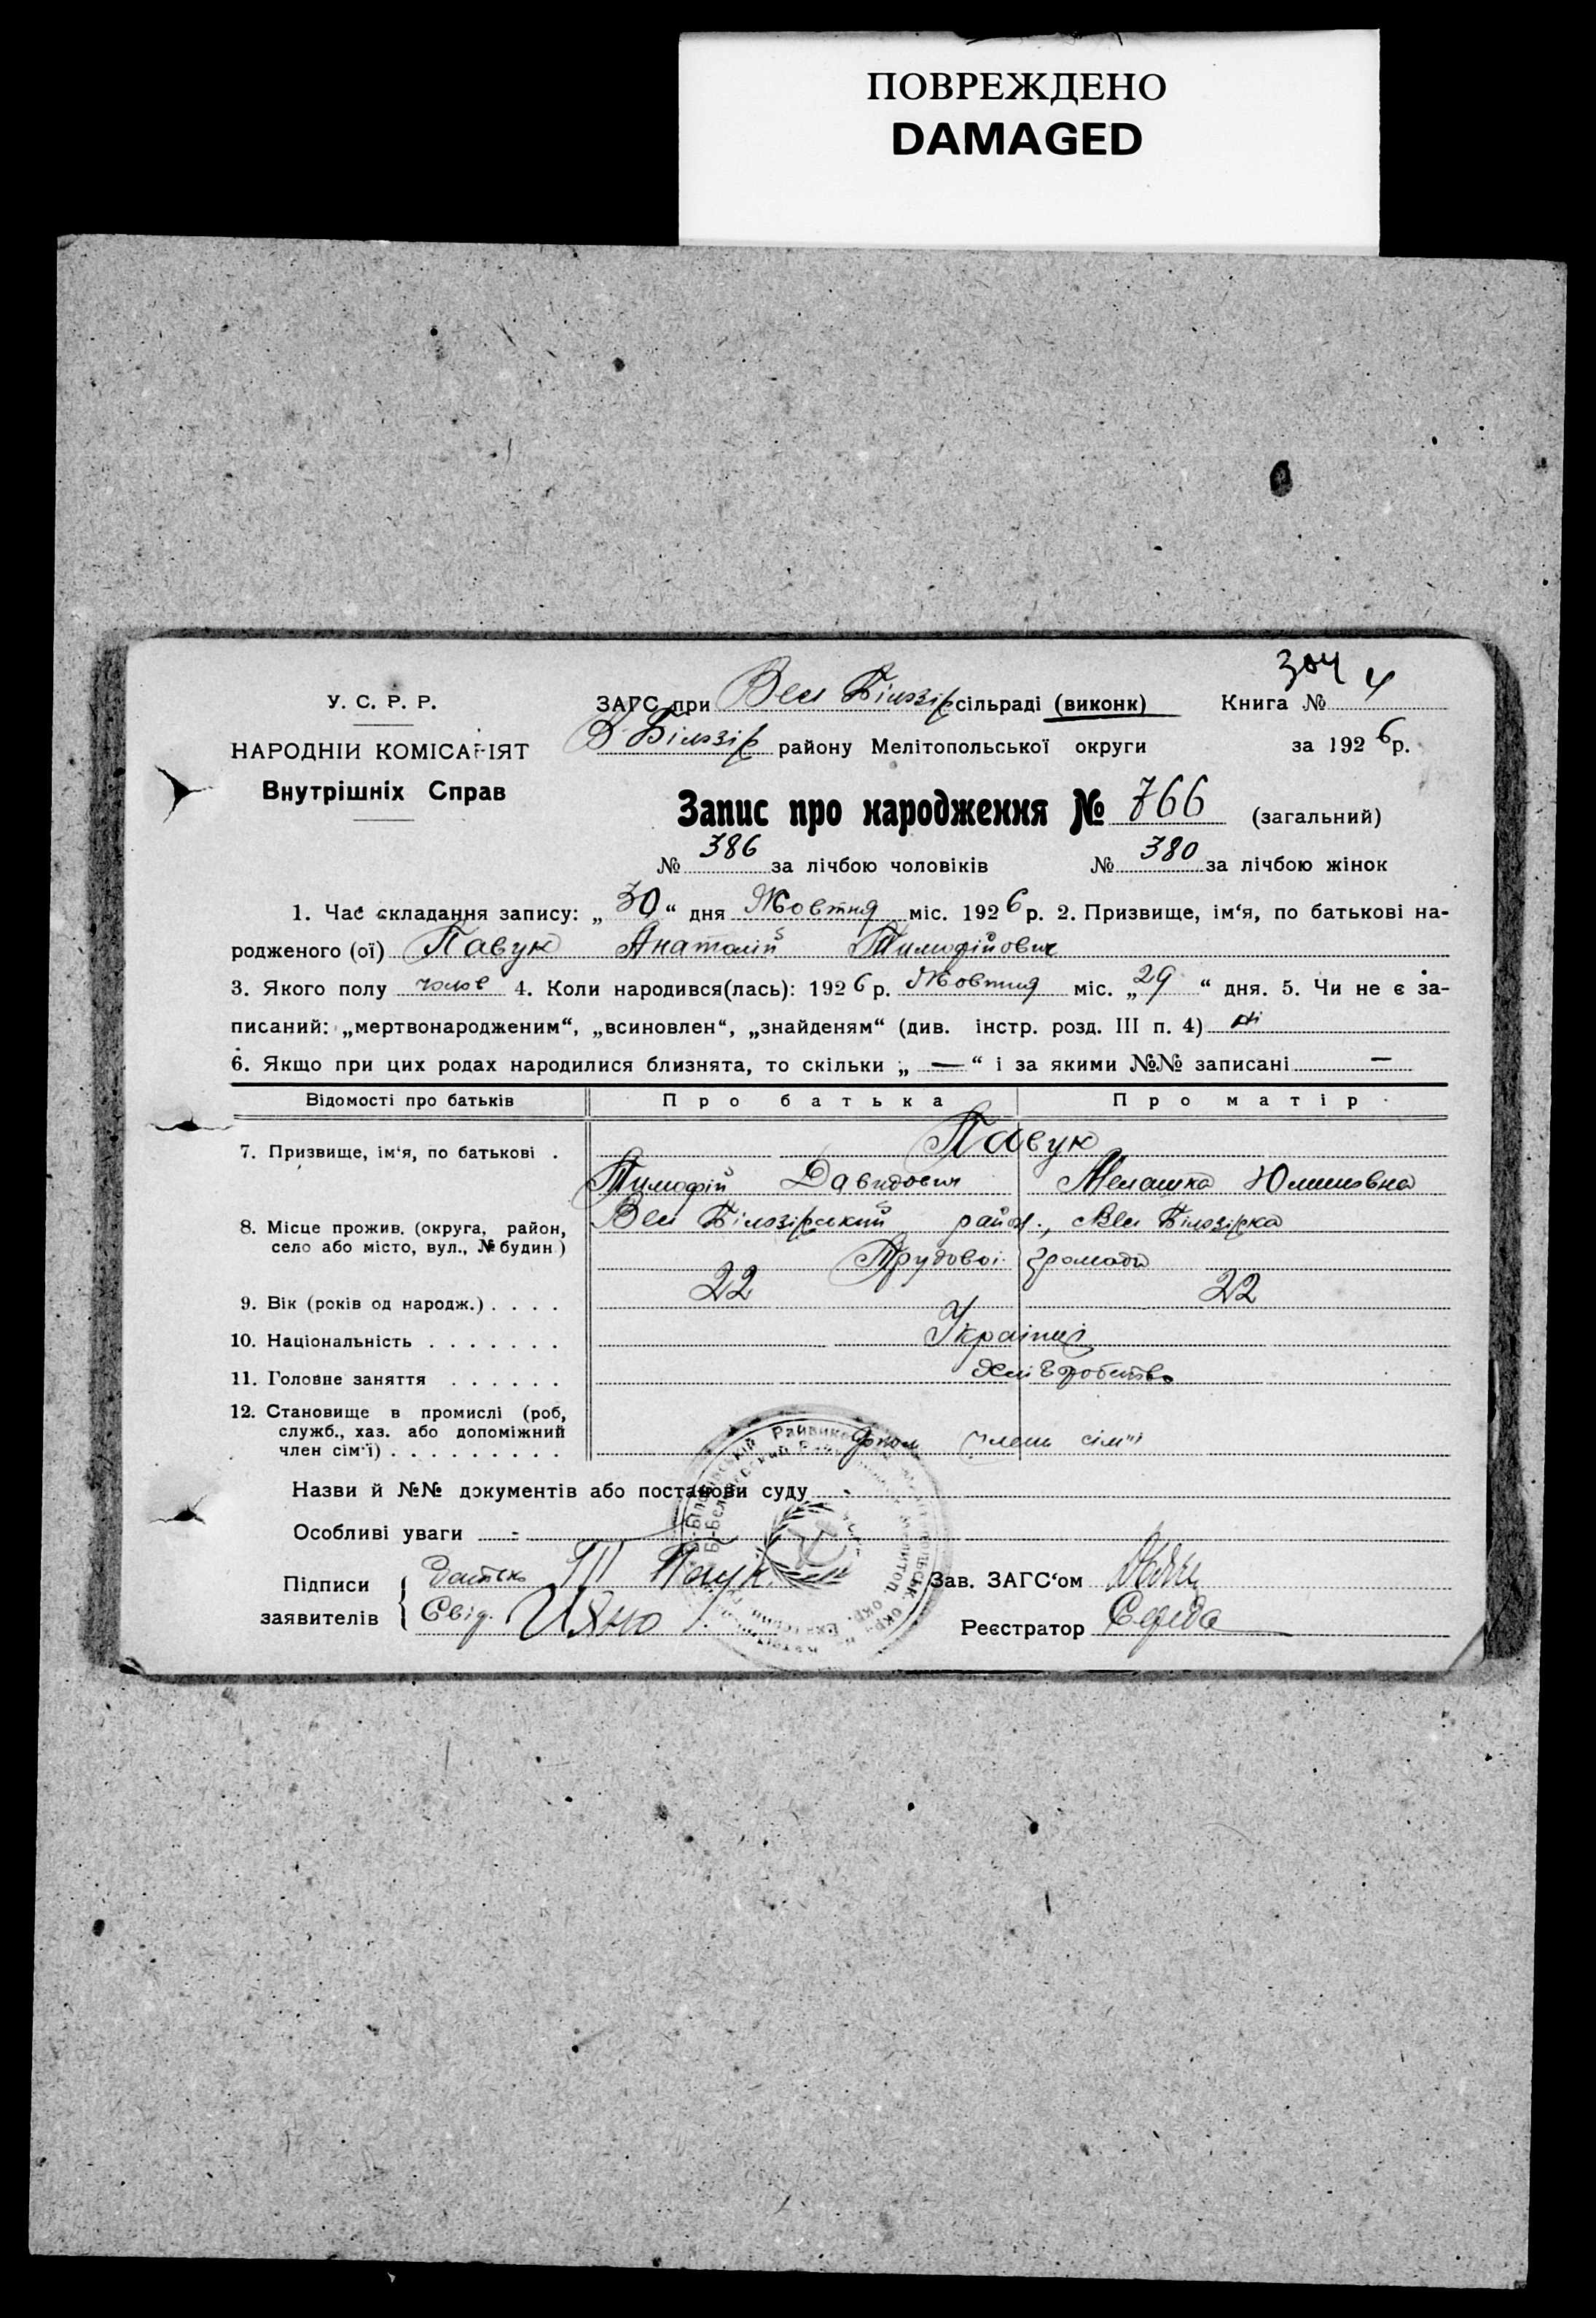 ПОВРЕЖДЕНО
DAMAGED
304 4
У. С. Р. Р. ЗАГС при Вел Білозір сільраді (виконк) Книга №
НАРОДНІЙ КОМІСАРІЯТ В Білозір району Мелітопольської округи за 1926 р.
Внутрішніх Справ
Запис про народження № 766 (загальний)
№ 386 за лічбою чоловіків № 380 за лічбою жінок
1. Час складання запису: „30“ дня Жовтня міс. 1926 р. 2. Призвище, ім‘я, по батькові на-
родженого (ої) Павук Анатолій Тимофійович
3. Якого полу чолов 4. Коли народився(лась): 1926 р. Жовтня міс. „29“ дня. 5. Чи не є за-
писаний: „мертвонародженим“, „всиновлен“, „знайденям“ (див. інстр. розд. III п. 4) ні
6. Якщо при цих родах народилися близнята, то скільки „ — “ і за якими №№ записані —
Відомості про батьків Про батька Про матір
7. Призвище, ім‘я, по батькові . Павук
Тимофій Давидович Мелашка Юхимовна
8. Місце прожив. (округа, район, Вел Білозірський район., Вел Білозірка
село або місто, вул., № будин.) Трудовоі громади
9. Вік (років од народж.) . . . . 22 22
10. Національність . . . . . . . Українці
11. Головне заняття . . . . . . хліборобство
12. Становище в промислі (роб,
служб., хаз. або допоміжний
член сім‘ї) . . . . . . . . . член сім"і
Назви й №№ документів або постанови суду -
Особливі уваги -
Підписи Батько ТП Паук. Зав. ЗАГС‘ом
заявителів Свід. Реєстратор Середа